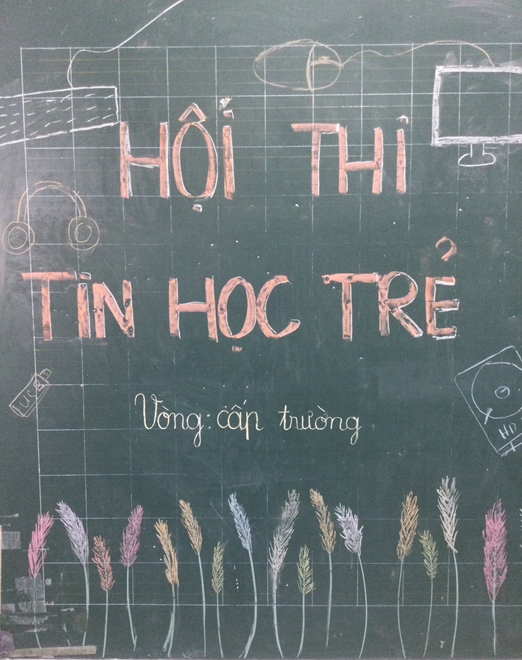 HỘI THI
TIN HỌC TRẺ
Vòng: cấp trường
HD